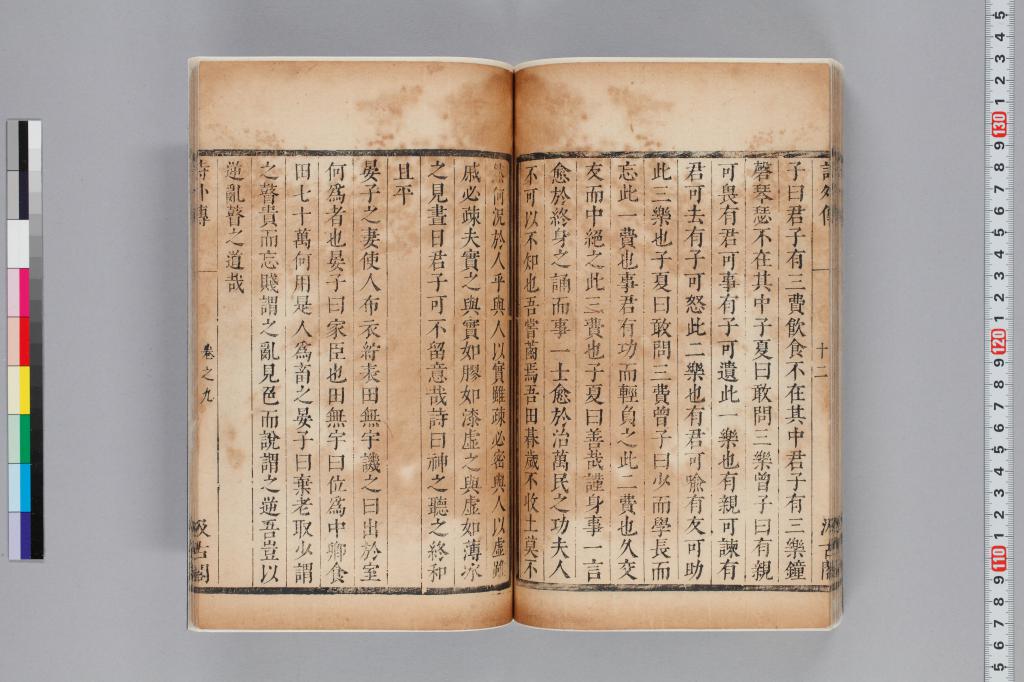 子曰君子有三費飲食不在其中君子有三樂鐘
磬琴瑟不在其中子夏曰敢問三樂曾子曰有親
可畏有君可事有子可遺此一樂也有親可諫有
君可去有子可怒此二樂也有君可喻有友可助
此三樂也子夏曰敢問三費曾子曰少而學長而
忘此一費也事君有功而輕負之此二費也久交
友而中絕之此三費也子夏曰善哉謹身事一言
愈於終身之誦而事一士愈於治萬民之功夫人
不可以不知也吾嘗菑焉吾田暮歲不收土莫不
然何況於人乎與人以實雖疎必密與人以虛雖
戚必疎夫實之與實如膠如漆虛之與虛如薄冰
之見晝日君子可不留意哉詩曰神之聽之終和
且平
晏子之妻使人布衣紵表田無宇譏之曰出於室
何爲者也晏子曰家臣也田無宇曰位爲中卿食
田七十萬何用是人爲畜之晏子曰棄老取少謂
之瞽貴而忘賤謂之亂見色而說謂之逆吾豈以
逆亂瞽之道哉
詩外傳
卷之九
汲古閣
十二